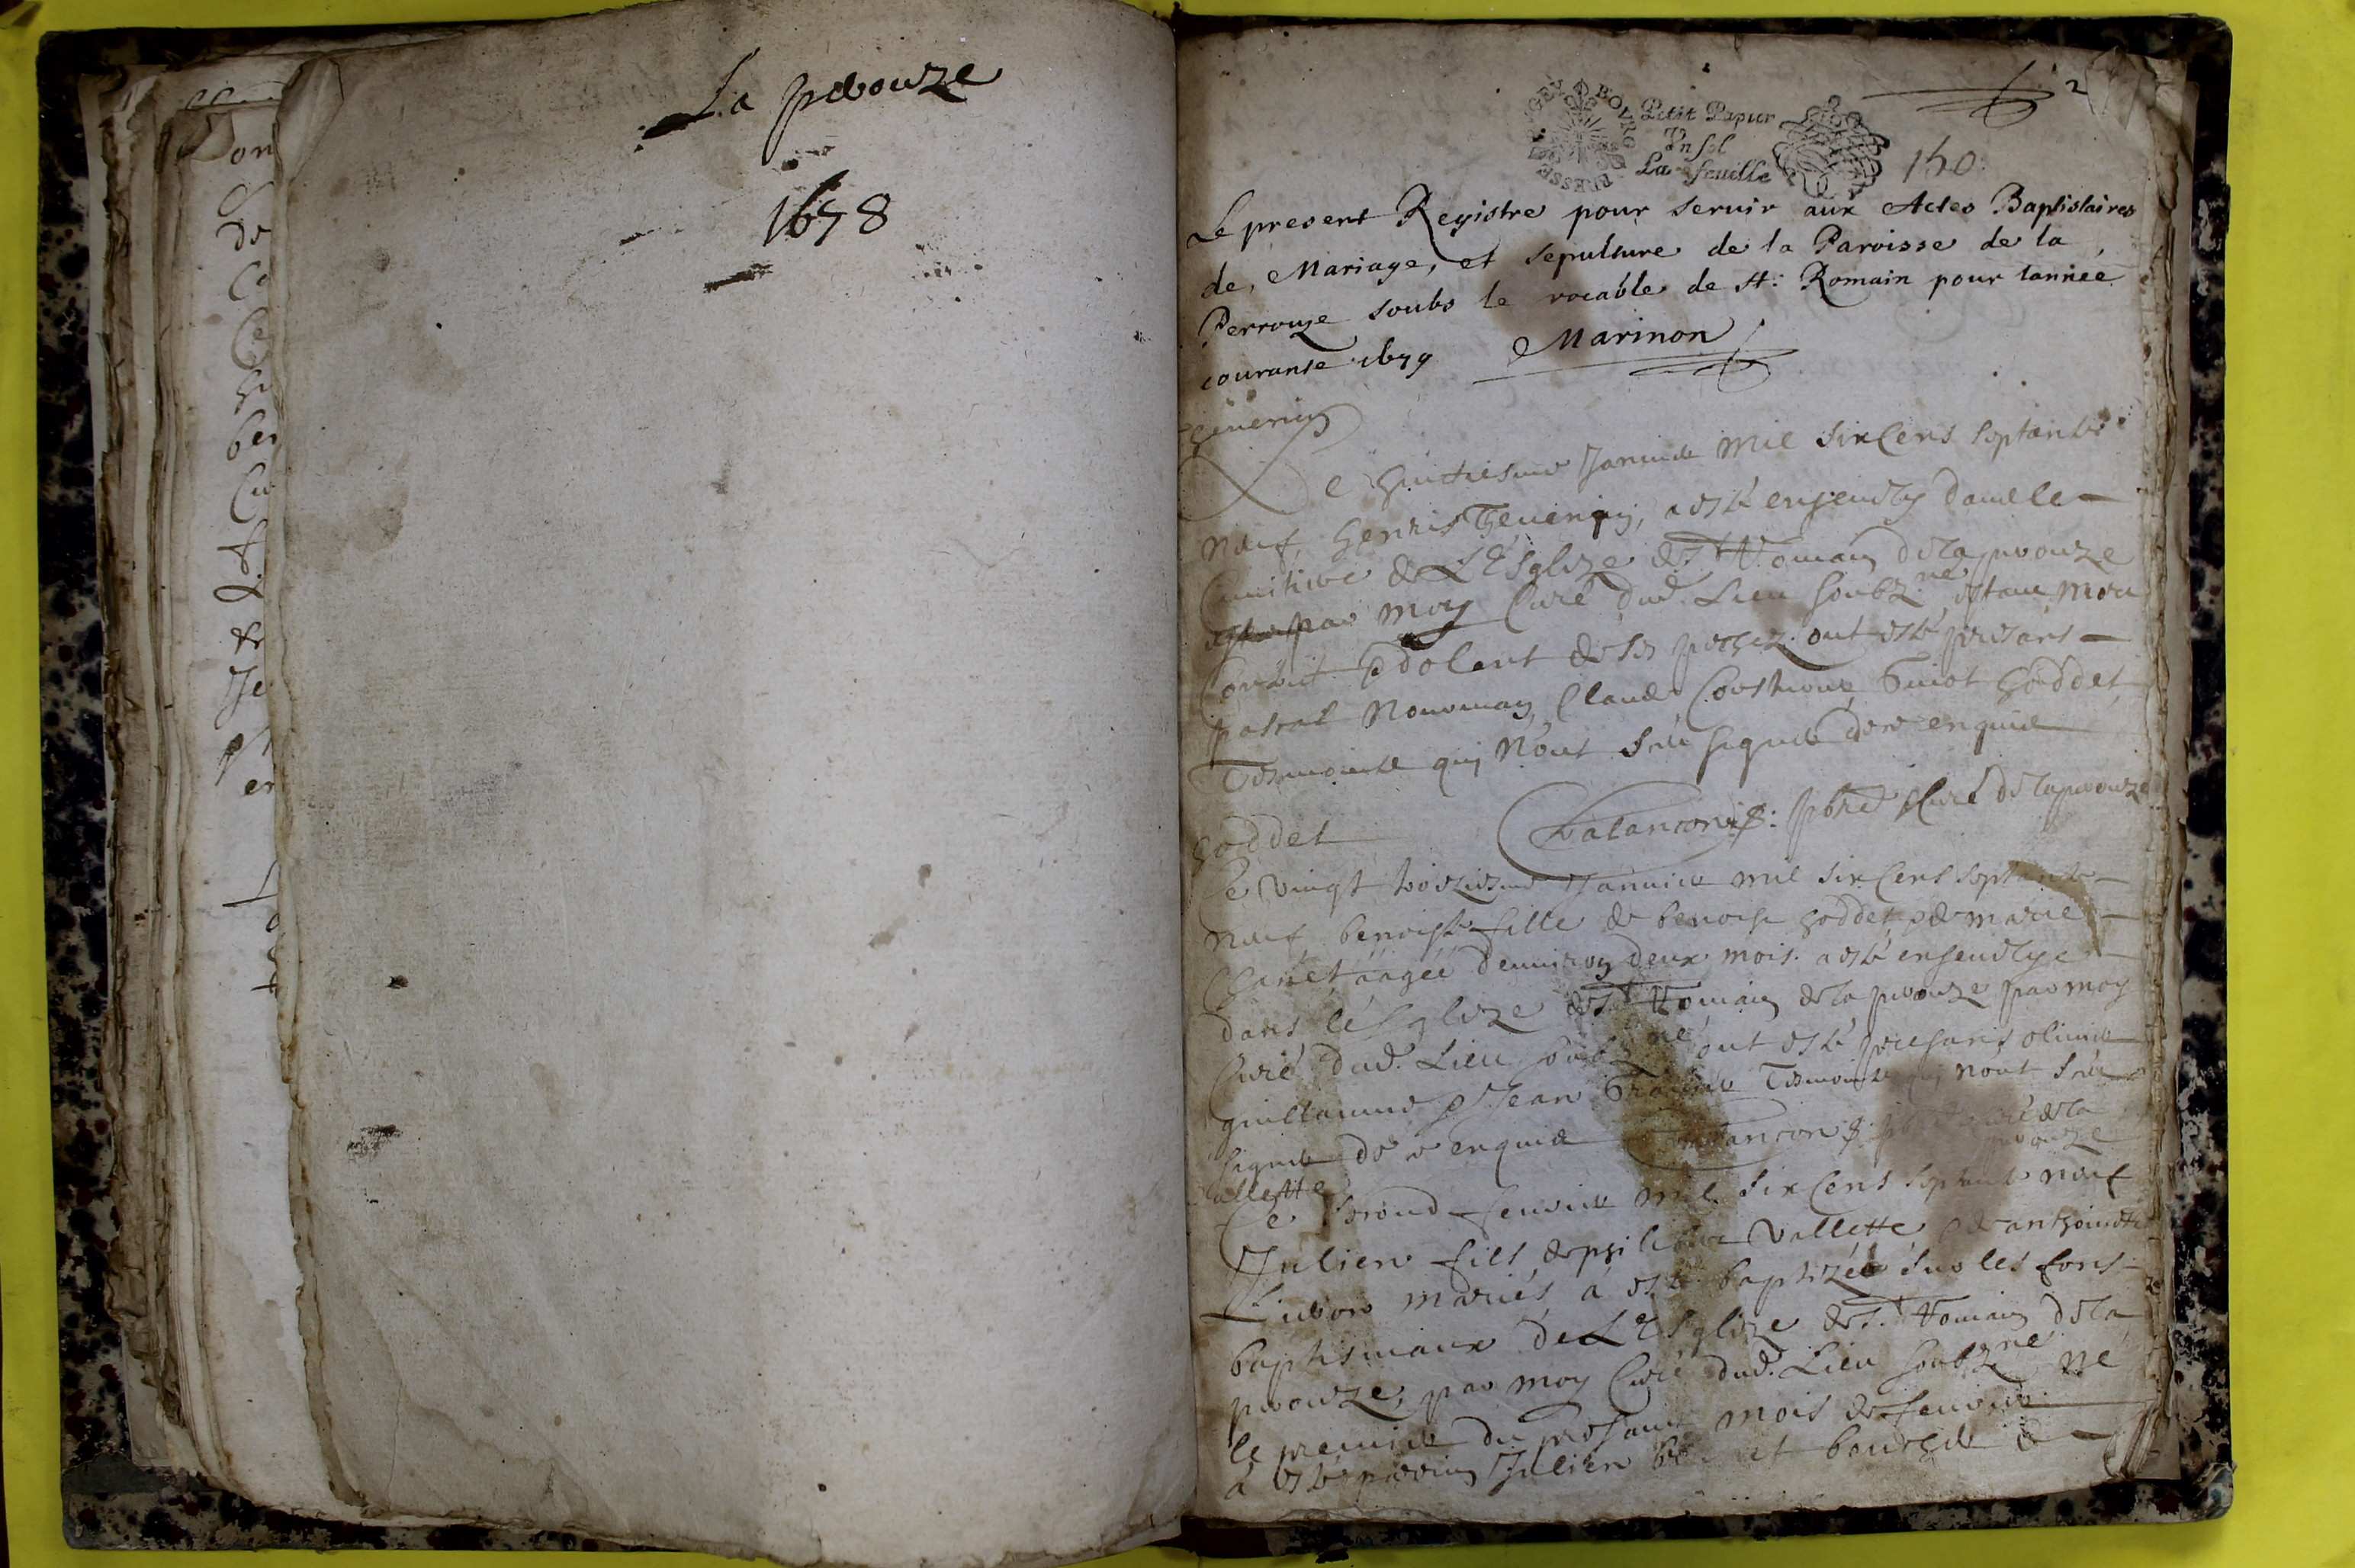 La perouze
1678
2
GEX BOURG BRESSE
Petit Papier
Un sol
La feuille
160
Le present Registre pour servir aux Actes Baptistaires
de, Mariage, et sepulture de la Paroisse de la
Perrouze soubs le vocable de st: Romain pour lannée
courante 1679 Marinon
Thevenin
Le huictiesme Janvier mil six Cens septante
neuf, henris Thevenin, a esté ensevely dans le
Cimitiere de L'Esglize de St Romain de la perouze
par moy Curé dud. Lieu soubz.né estant mort
Contrit & dolent de ses pechez. ont esté presans
pascal Claude Guiot Goddet
Tesmoinct qui n'ont sceu signer de ce enquis
Goddet Balancon: pbre Curé de la perouze
Ce vingt troiziesme Janvier mil six Cens septante
neuf benoiste fille de benoist Goddet, & de marie
Chanet, aagée d'environ deux mois. a esté ensevelye
dans lésglize de St Romain de la perouze par moy
Curé dud. Lieu soubz.né ont esté presans olivier
guillaume & Jean Tesmoins qui nont sceu
signer de ce enquis Balancon pbre Curé de la
perouze
Vallette
Ce second fevrier mil six Cens septante neuf
Julien fils de philibert Vallette & de anthoinette
mariés, á esté baptizée sur les fons
baptismaux de L'Esglize de St. Romain de la
perouze, par moy Curé dud. Lieu soubz.né né
le premier du presant mois de fevrier
á esté parrin Julien bourgeois &